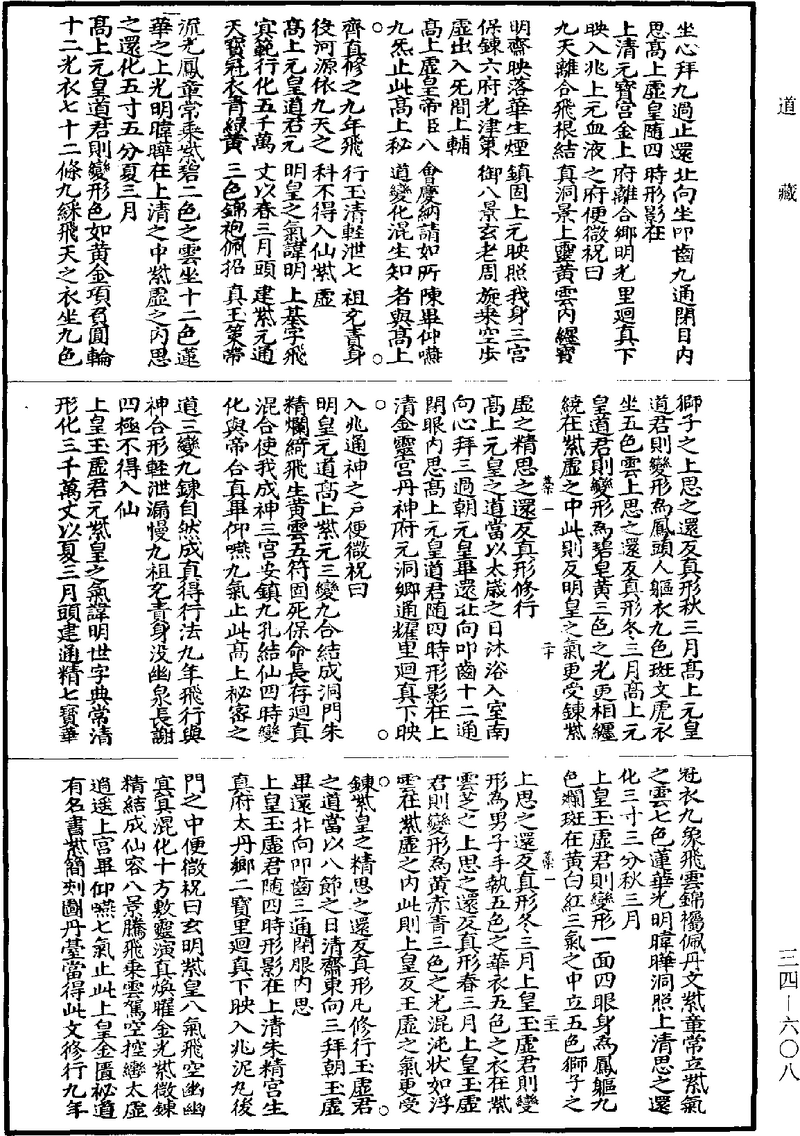 道藏
坐心拜九過止還北向坐叩齒九通閉目內
思高上虛皇隨四時形影在
上清元寶宮金上府離合鄉明光里迴真下
映入兆上元血液之府便微祝曰
九天離合飛根結真洞景上靈黃雲內纏寶
明齋映落華生煙鎮固上元映照我身三宮
保鍊六府光津策御八景玄老周旋乘空步
虛出入死間上輔
高上虛皇帝臣八會慶納請如所陳畢仰嚥
九炁止此高上秘道變化混生知者與高上
齊真修之九年飛行玉清輕泄七祖充責身
後河源依九天之科不得入仙紫虛
高上元皇道君元明皇之氣諱明上基字飛
賓範行化五千萬丈以春三月頭建紫元通
天寶冠衣青綠黃三色錦袍佩招真玉策帶
流光鳳章常乘紫碧二色之雲坐十二色蓮
華之上光明暐曄在上清之中紫虛之內思
之還化五寸五分夏三月
高上元皇道君則變形色如黃金項負圓輪
十二光衣七十二條九綵飛天之衣坐九色
獅子之上思之還反真形秋三月高上元皇
道君則變形為鳳頭人軀衣九色斑文虎衣
坐五色雲上思之還反真形冬三月高上元
皇道君則變形為碧皂黃三色之光更相纏
繞在紫虛之中此則反明皇之氣更受鍊紫
虛之精思之還反真形修行
高上元皇之道當以太歲之日沐浴入室南
向心拜三過朝元皇畢還北向叩齒十二通
閉眼內思高上元皇道君隨四時形影在上
清金靈宮丹神府元洞鄉通耀里迴真下映
入兆通神之戶便微祝曰
明皇元道高上紫元三變九合結成洞門朱
精爛綺飛生黃雲五符固死保命長存迴真
混合使我成神三宮安鎮九孔結仙四時變
化與帝合真畢仰嚥九氣止此高上秘密之
道三變九鍊自然成真得行法九年飛行與
神合形輕泄漏慢九祖充責身沒幽泉長謝
四極不得入仙
上皇玉虛君元紫皇之氣諱明世字典常清
形化三千萬丈以夏三月頭建通精七寶華
冠衣九象飛雲錦襡佩丹文紫章常立紫氣
之雲七色蓮華光明暐曄洞照上清思之還
化三寸三分秋三月
上皇玉虛君則變形一面四眼身為鳳軀九
色斕斑在黃白紅三氣之中立五色獅子之
上思之還反真形冬三月上皇玉虛君則變
形為男子手執五色之華衣五色之衣在紫
雲之上思之還反真形春三月上皇玉虛
君則變形為黃赤青三色之光混沌狀如浮
雲在紫虛之內此則上皇反玉虛之氣更受
鍊紫皇之精思之還反真形凡修行玉虛君
之道當以八節之日清齋東向三拜朝玉虛
畢還北向叩齒三通閉眼內思
上皇玉虛君隨四時形影在上清朱精宮生
真府太丹鄉二寶里迴真下映入兆泥丸後
門之中便微祝曰玄明紫皇八氣飛空幽幽
冥冥混化十方敷靈演真煥曜金光紫微鍊
精結成仙容八景騰飛乘雲駕空控轡太虛
逍遙上宮畢仰嚥七氣止此上皇金匱祕道
有名書紫簡刻圖丹臺當得此文修行九年
三四—六〇八